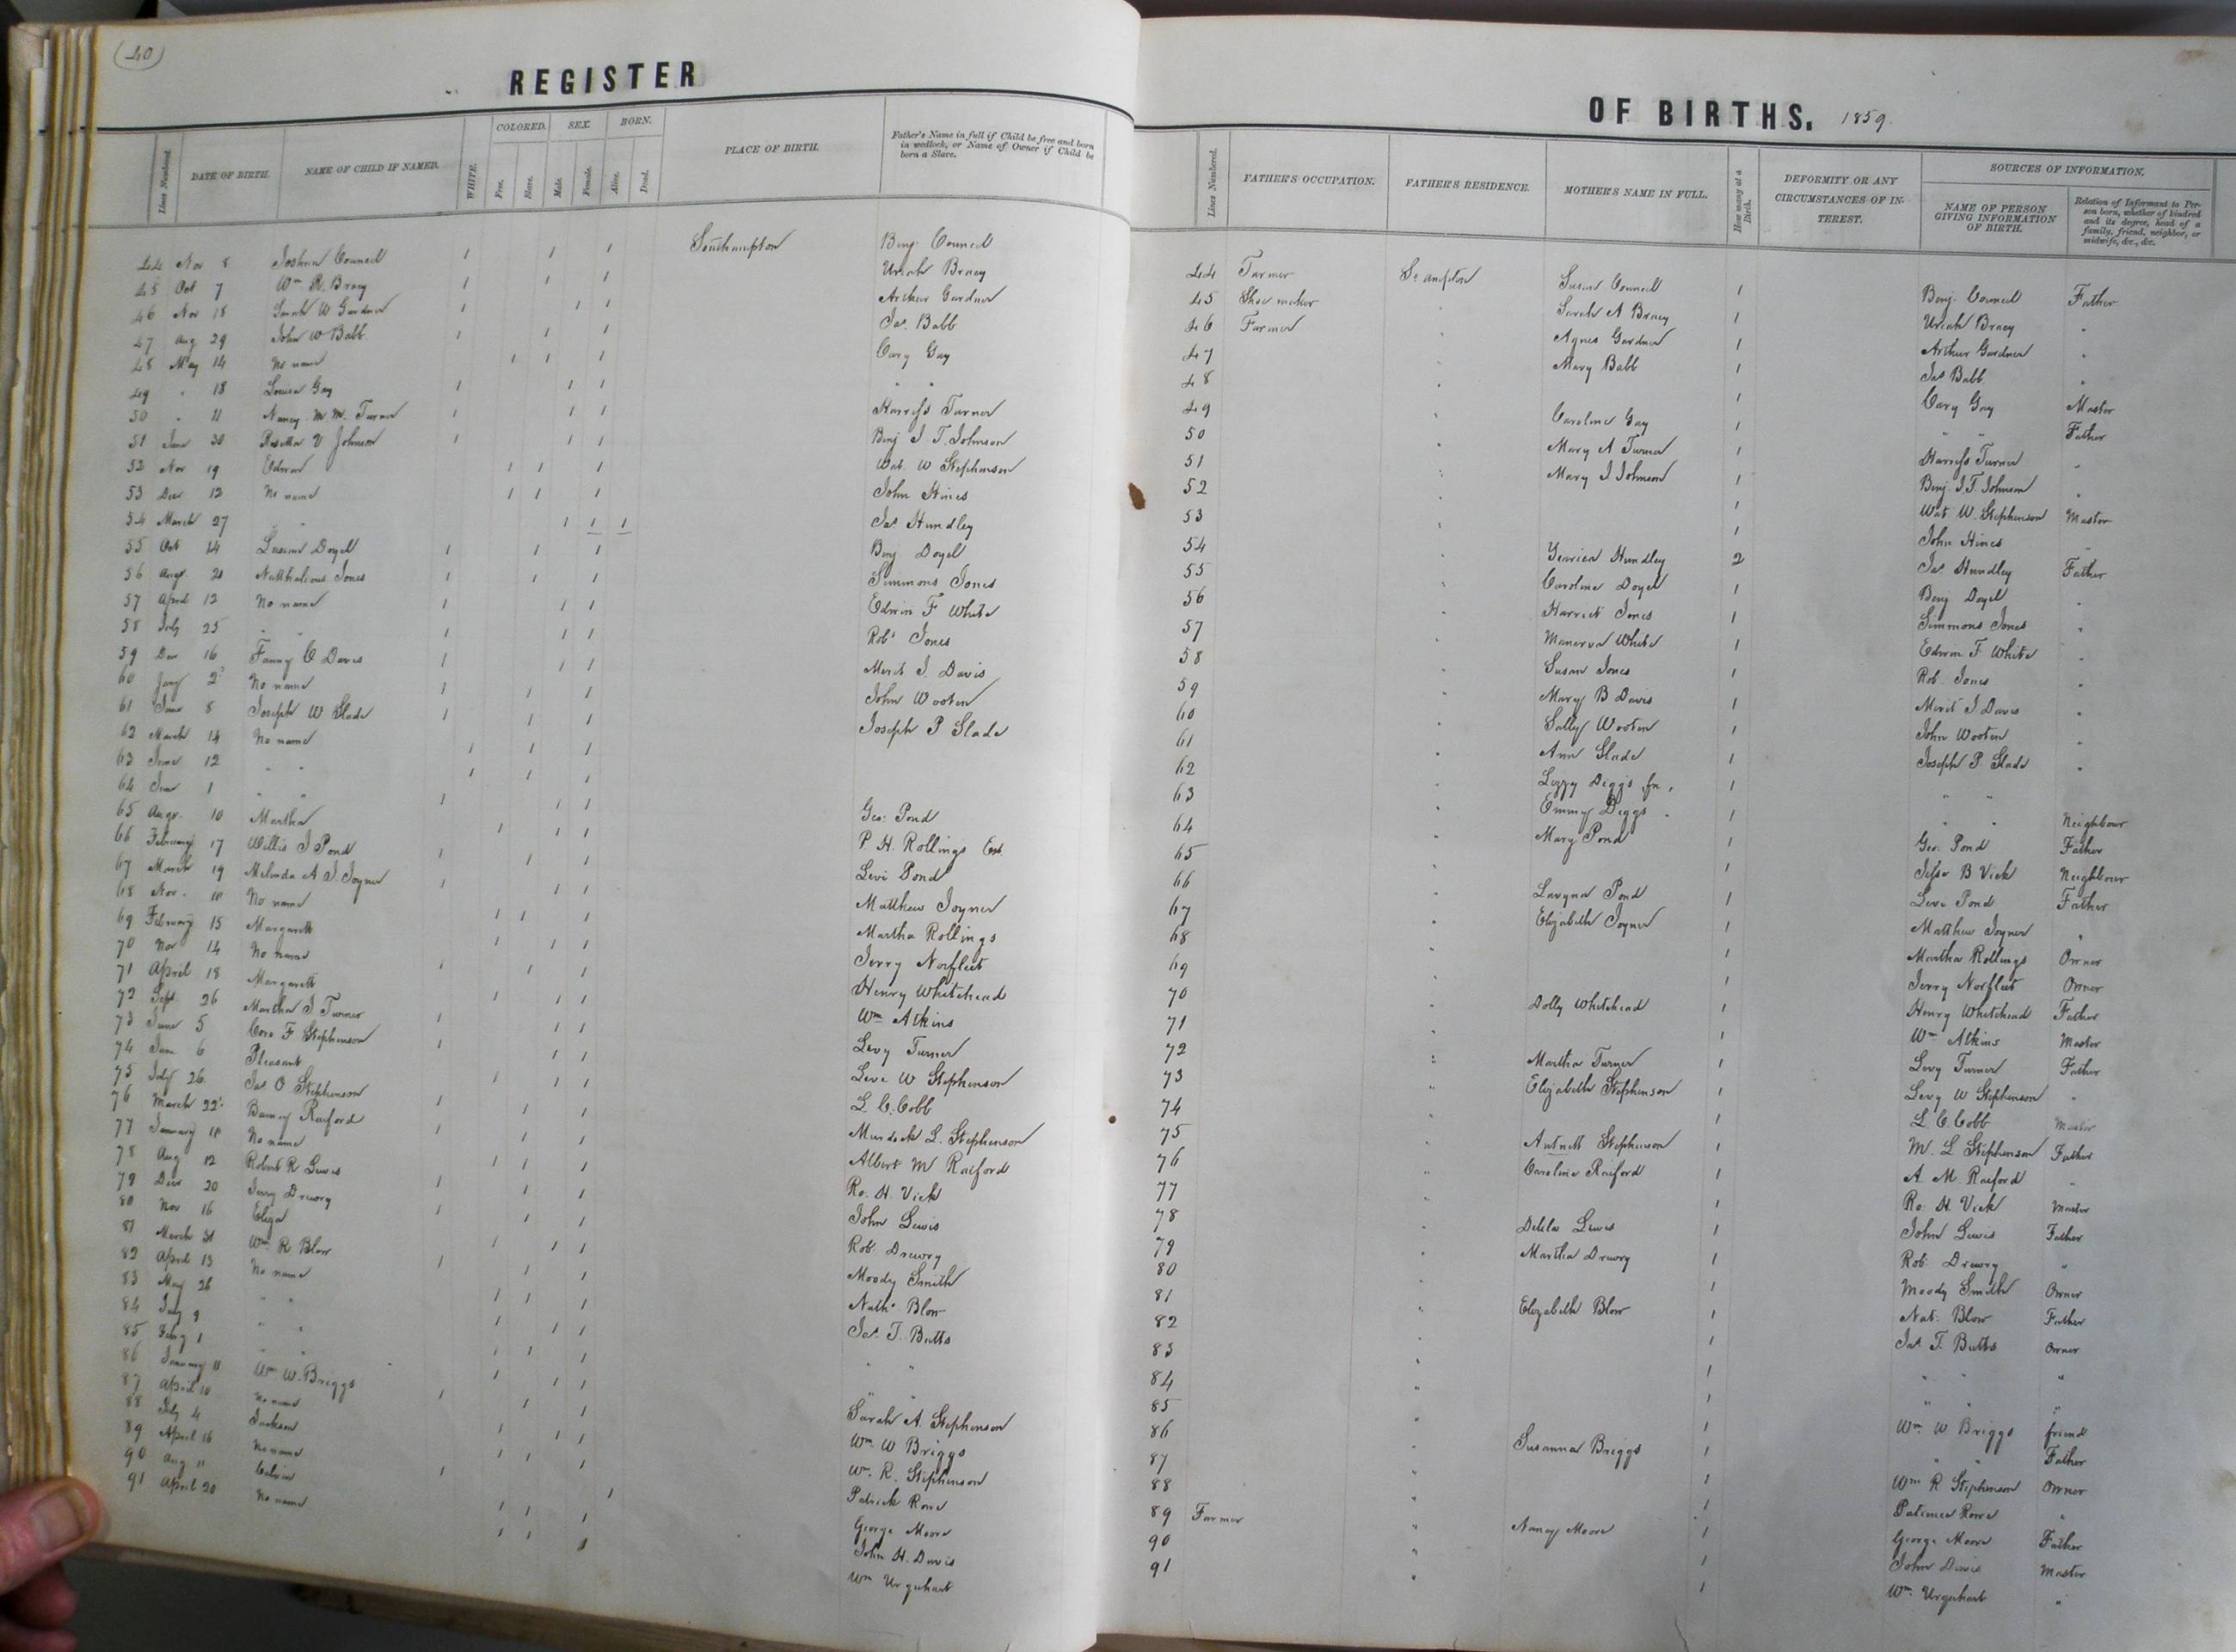 (40)
REGISTER
Lines Numbered.
DATE OF BIRTH.
NAME OF CHILD IF NAMED.
WHITE.
COLORED.
Free.
Slave.
SEX.
Male.
Female.
BORN.
Alive.
Dead.
PLACE OF BIRTH.
Father's Name in full if Child be free and born
in wedlock, or Name of Owner if Child be
born a Slave.
44 Nov 8 Joshua Council Southampton Benj. Council
45 Oct 7 Wm R. Bracy Uriah Bracy
46 Nov 18 Sarah W Gardner Arthur Gardner
47 Aug 29 John W Babb Jas. Babb
48 May 14 No name Cary Gay
49 " 18 Louisa Gay " "
50 " 11 Nancy M. M. Turner Harriss Turner
51 June 30 Rosetta V Johnson Benj J. T. Johnson
52 Nov 19 Edwin Wat. W Stephenson
53 Dec 12 No name John Hines
54 March 27 " Jas. Hundley
55 Oct 14 Doyel Benj Doyel
56 Augt. 21 Jones Simmons Jones
57 April 12 No name Edwin F White
58 July 25 " " Robt Jones
59 Dec 16 Fanny C Davis Merit J. Davis
60 Jany 2 No name John Wooten
61 June 8 Joseph W Slade Joseph P Slade
62 March 14 No name
63 June 12 " "
64 June 1 " " Geo. Pond
65 Augt. 10 Martha P. H. Rollings Est.
66 February 17 Willis J Pond Levi Pond
67 March 19 Melinda A. J. Joyner Matthew Joyner
68 Nov. 10 No name Martha Rollings
69 February 15 Margarett Jerry Norfleet
70 Nov 14 No name Henry Whitehead
71 April 18 Margarett Wm Atkins
72 Sept. 26 Martha J Turner Levy Turner
73 June 5 Cora F Stephenson Levi W Stephenson
74 June 6 Pleasant L. C. Cobb
75 July 26 Jas O Stephenson Murdock L. Stephenson
76 March 22 Raiford Albert M Raiford
77 January 18 No name Ro. H. Vick
78 Aug 12 Robert R Lewis John Lewis
79 Dec 20 Jerry Drewry Rob. Drewry
80 Nov 16 Eliza Moody Smith
81 March 31 Wm R Blow Nath. Blow
82 April 13 No name Jas. T. Butts
83 May 26 " " " "
84 July 9 " " " "
85 Feby 1 " Sarah A. Stephenson
86 January 11 Wm W. Briggs Wm W Briggs
87 April 10 No name Wm. R. Stephenson
88 July 4 Jackson Patrick Rowe
89 April 16 No name George Moore
90 Aug 11 Calvin John H. Davis
91 April 20 No name Wm Urquhart
OF BIRTHS. 1859
Lines Numbered.
FATHER'S OCCUPATION.
FATHER'S RESIDENCE.
MOTHER'S NAME IN FULL.
How many at a Birth.
DEFORMITY OR ANY
CIRCUMSTANCES OF IN-
TEREST.
SOURCES OF INFORMATION.
NAME OF PERSON
GIVING INFORMATION
OF BIRTH.
Relation of Informant to Per-
son born, whether of kindred
and its degree, head of a
family, friend, neighbor, or
midwife, &c., &c.
44 Farmer So ampton Susan Council 1 Benj. Council Father
45 Shoe maker " Sarah A Bracy 1 Uriah Bracy "
46 Farmer " Agnes Gardner 1 Arthur Gardner "
47 " Mary Babb 1 Jas Babb "
48 " 1 Cary Gay Master
49 " Caroline Gay 1 " " Father
50 " Mary A Turner 1 Harriss Turner "
51 " Mary J Johnson 1 Benj. J. T. Johnson "
52 " 1 Wat W. Stephenson Master
53 " 1 John Hines "
54 " Hundley 2 Jas. Hundley Father
55 " Caroline Doyel 1 Benj Doyel "
56 " Harriett Jones 1 Simmons Jones "
57 " Manerva White 1 Edwin F White "
58 " Susan Jones 1 Rob. Jones "
59 " Mary B Davis 1 Merit J Davis "
60 " Sally Wooten 1 John Wooten "
61 " Ann Slade 1 Joseph P Slade "
62 " Lizzy Diggs fn. 1 " "
63 " Emmy Diggs " 1 " " Neighbour
64 " Mary Pond 1 Geo. Pond Father
65 " 1 Jesse B Vick Neighbour
66 " Lavyna Pond 1 Levi Pond Father
67 " Elizabeth Joyner 1 Matthew Joyner "
68 " 1 Martha Rollings Owner
69 " 1 Jerry Norfleet Owner
70 " Dolly Whitehead 1 Henry Whitehead Father
71 " 1 Wm Atkins Master
72 " Martha Turner 1 Levy Turner Father
73 " Elizabeth Stephenson 1 Levy W Stephenson "
74 1 L. C. Cobb Master
75 " Antnett Stephenson 1 M. L Stephenson Father
76 " Caroline Raiford 1 A. M. Raiford "
77 " 1 Ro. H. Vick Master
78 " Delila Lewis 1 John Lewis Father
79 " Martha Drewry 1 Rob. Drewry "
80 1 Moody Smith Owner
81 " Elizabeth Blow 1 Nat. Blow Father
82 1 Jas. T. Butts Owner
83 " 1 " " "
84 " 1 " " "
85 " 1 Wm W Briggs friend
86 " Susanna Briggs 1 " " Father
87 " 1 Wm R Stephenson Owner
88 " 1 Rowe "
89 Farmer " Nancy Moore 1 George Moore Father
90 " 1 John Davis Master
91 " 1 Wm. Urquhart "